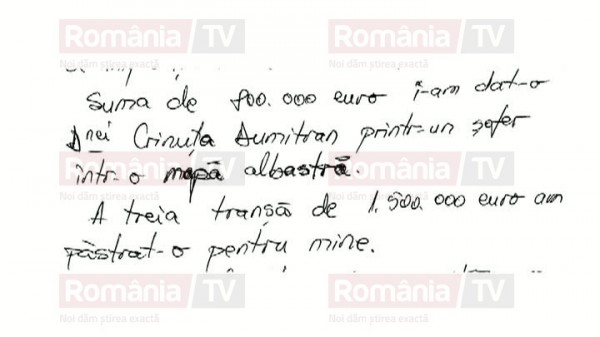 România TV România TV
Noi dăm știrea exactă Noi dăm știrea exactă
Suma de 800.000 euro i-am dat-o
Dnei Crinuta Dumitran printr-un șofer
într-o mapă albastră.
România TV România TV
Noi dăm știrea exactă Noi dăm știrea exactă
A treia tranșă de 1.500.000 euro am
păstrat-o pentru mine.
România TV România TV
Noi dăm știrea exactă Noi dăm știrea exactă